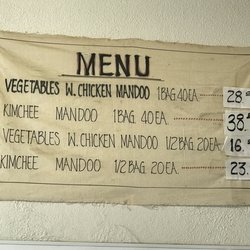 MENU
VEGETABLES W. CHICKEN MANDOO 1BAG. 40EA. 28
KIMCHEE MANDOO 1BAG. 40EA. 38
VEGETABLES W. CHICKEN MANDOO 1/2BAG. 20EA. 16.
KIMCHEE MANDOO 1/2BAG. 20EA. 23.